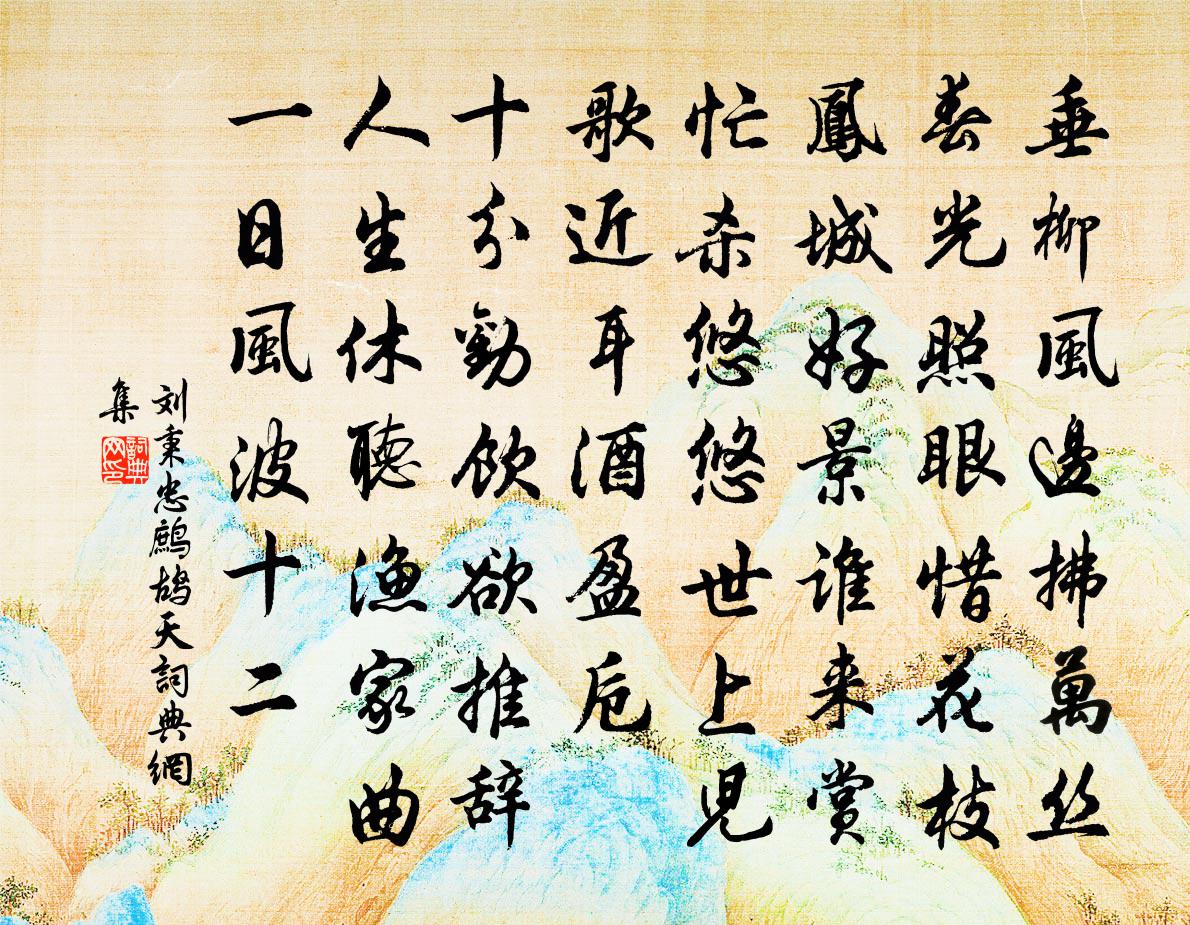 垂柳風邊拂萬丝
春光照眼惜花枝
鳳城好景谁来赏
忙杀悠悠世上児
歌近耳酒盈卮
十分勸飲欲推辞
人生休聽漁家曲
一日風波十二
刘秉忠鷓鴣天詞典網
集
詞典
网印